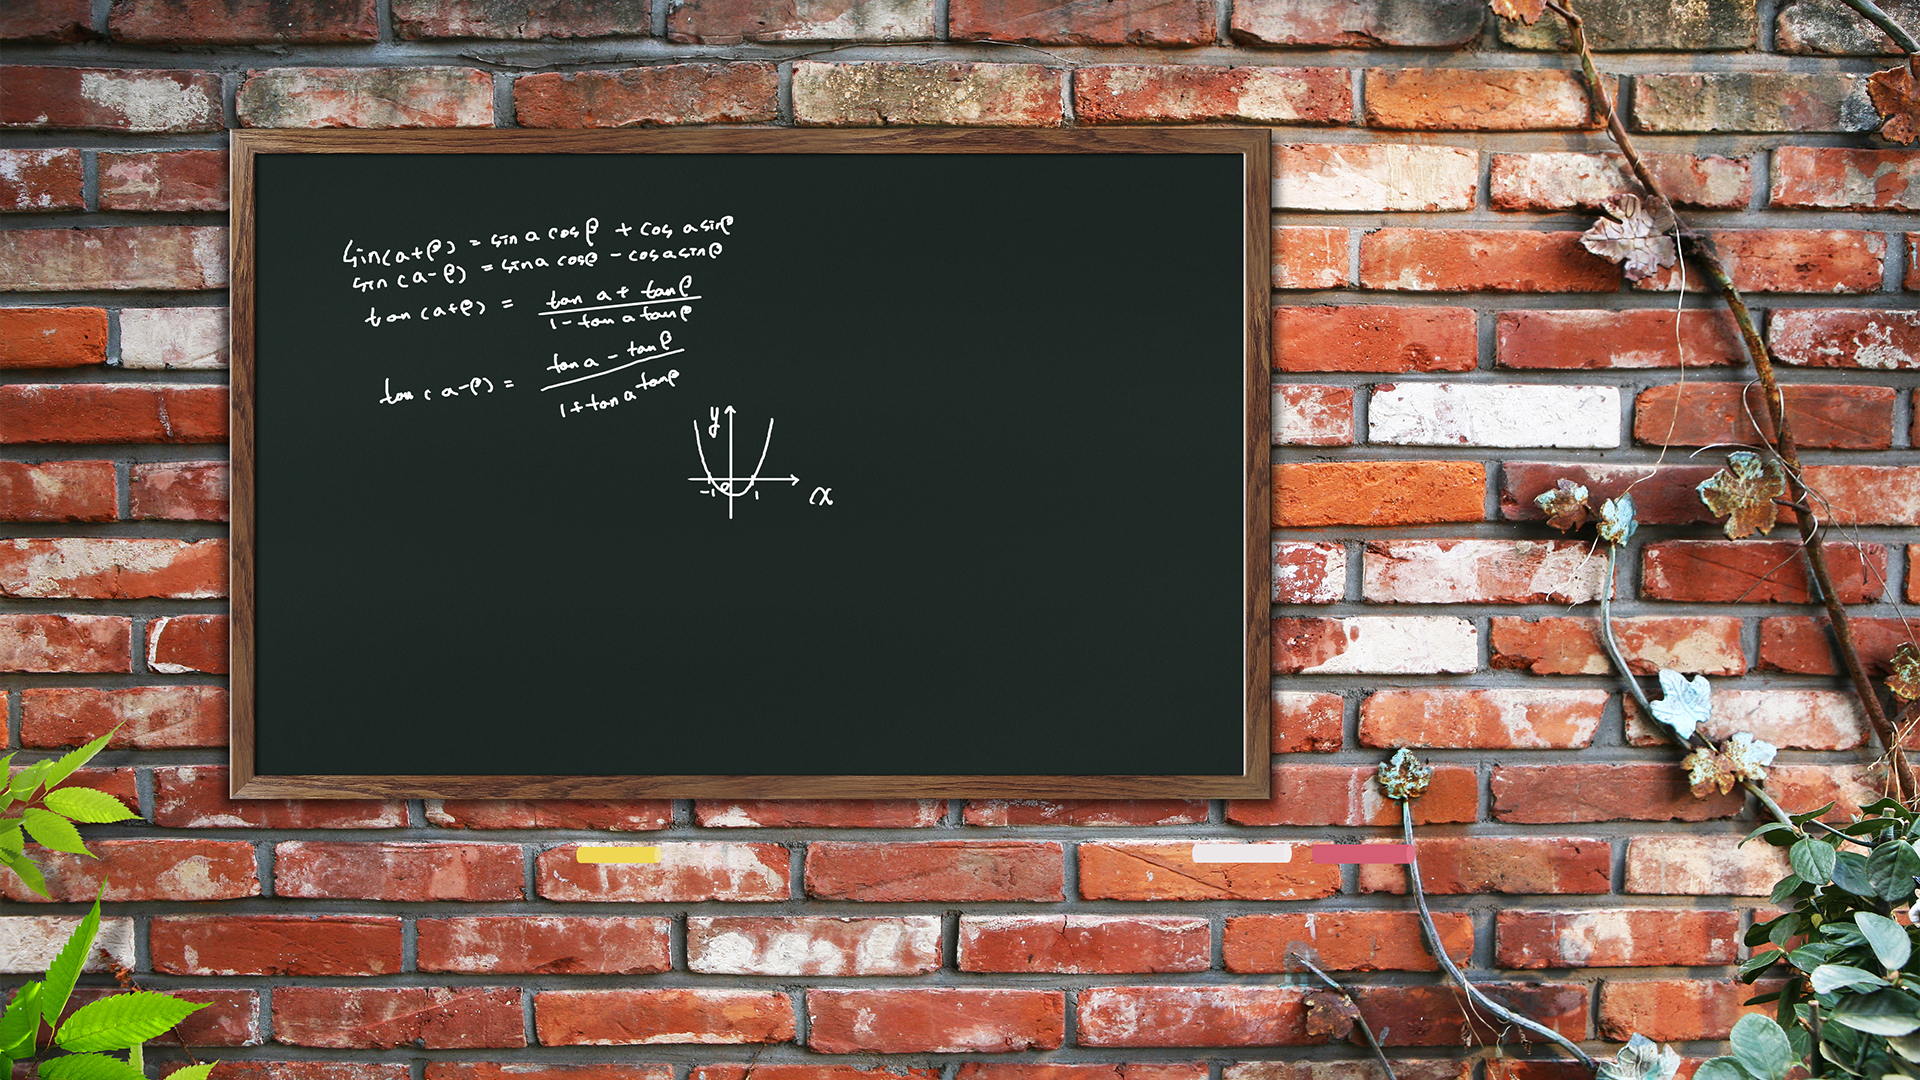 sin(a+β) = sin a cos β + cos a sin β
sin(a-β) = sin a cos β - cos a sin β
tan(a+β) = tan a + tan β / 1 - tan a tan β
tan(a-β) = tan a - tan β / 1 + tan a tan β
y
-1 0 1 x